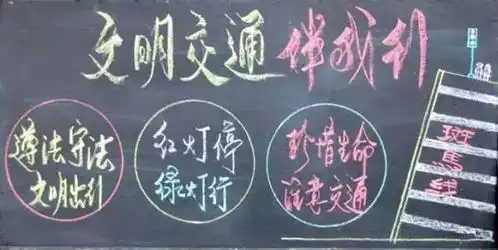 文明交通伴我行
遵法守法
文明出行
红灯停
绿灯行
珍惜生命
注意交通
斑馬线